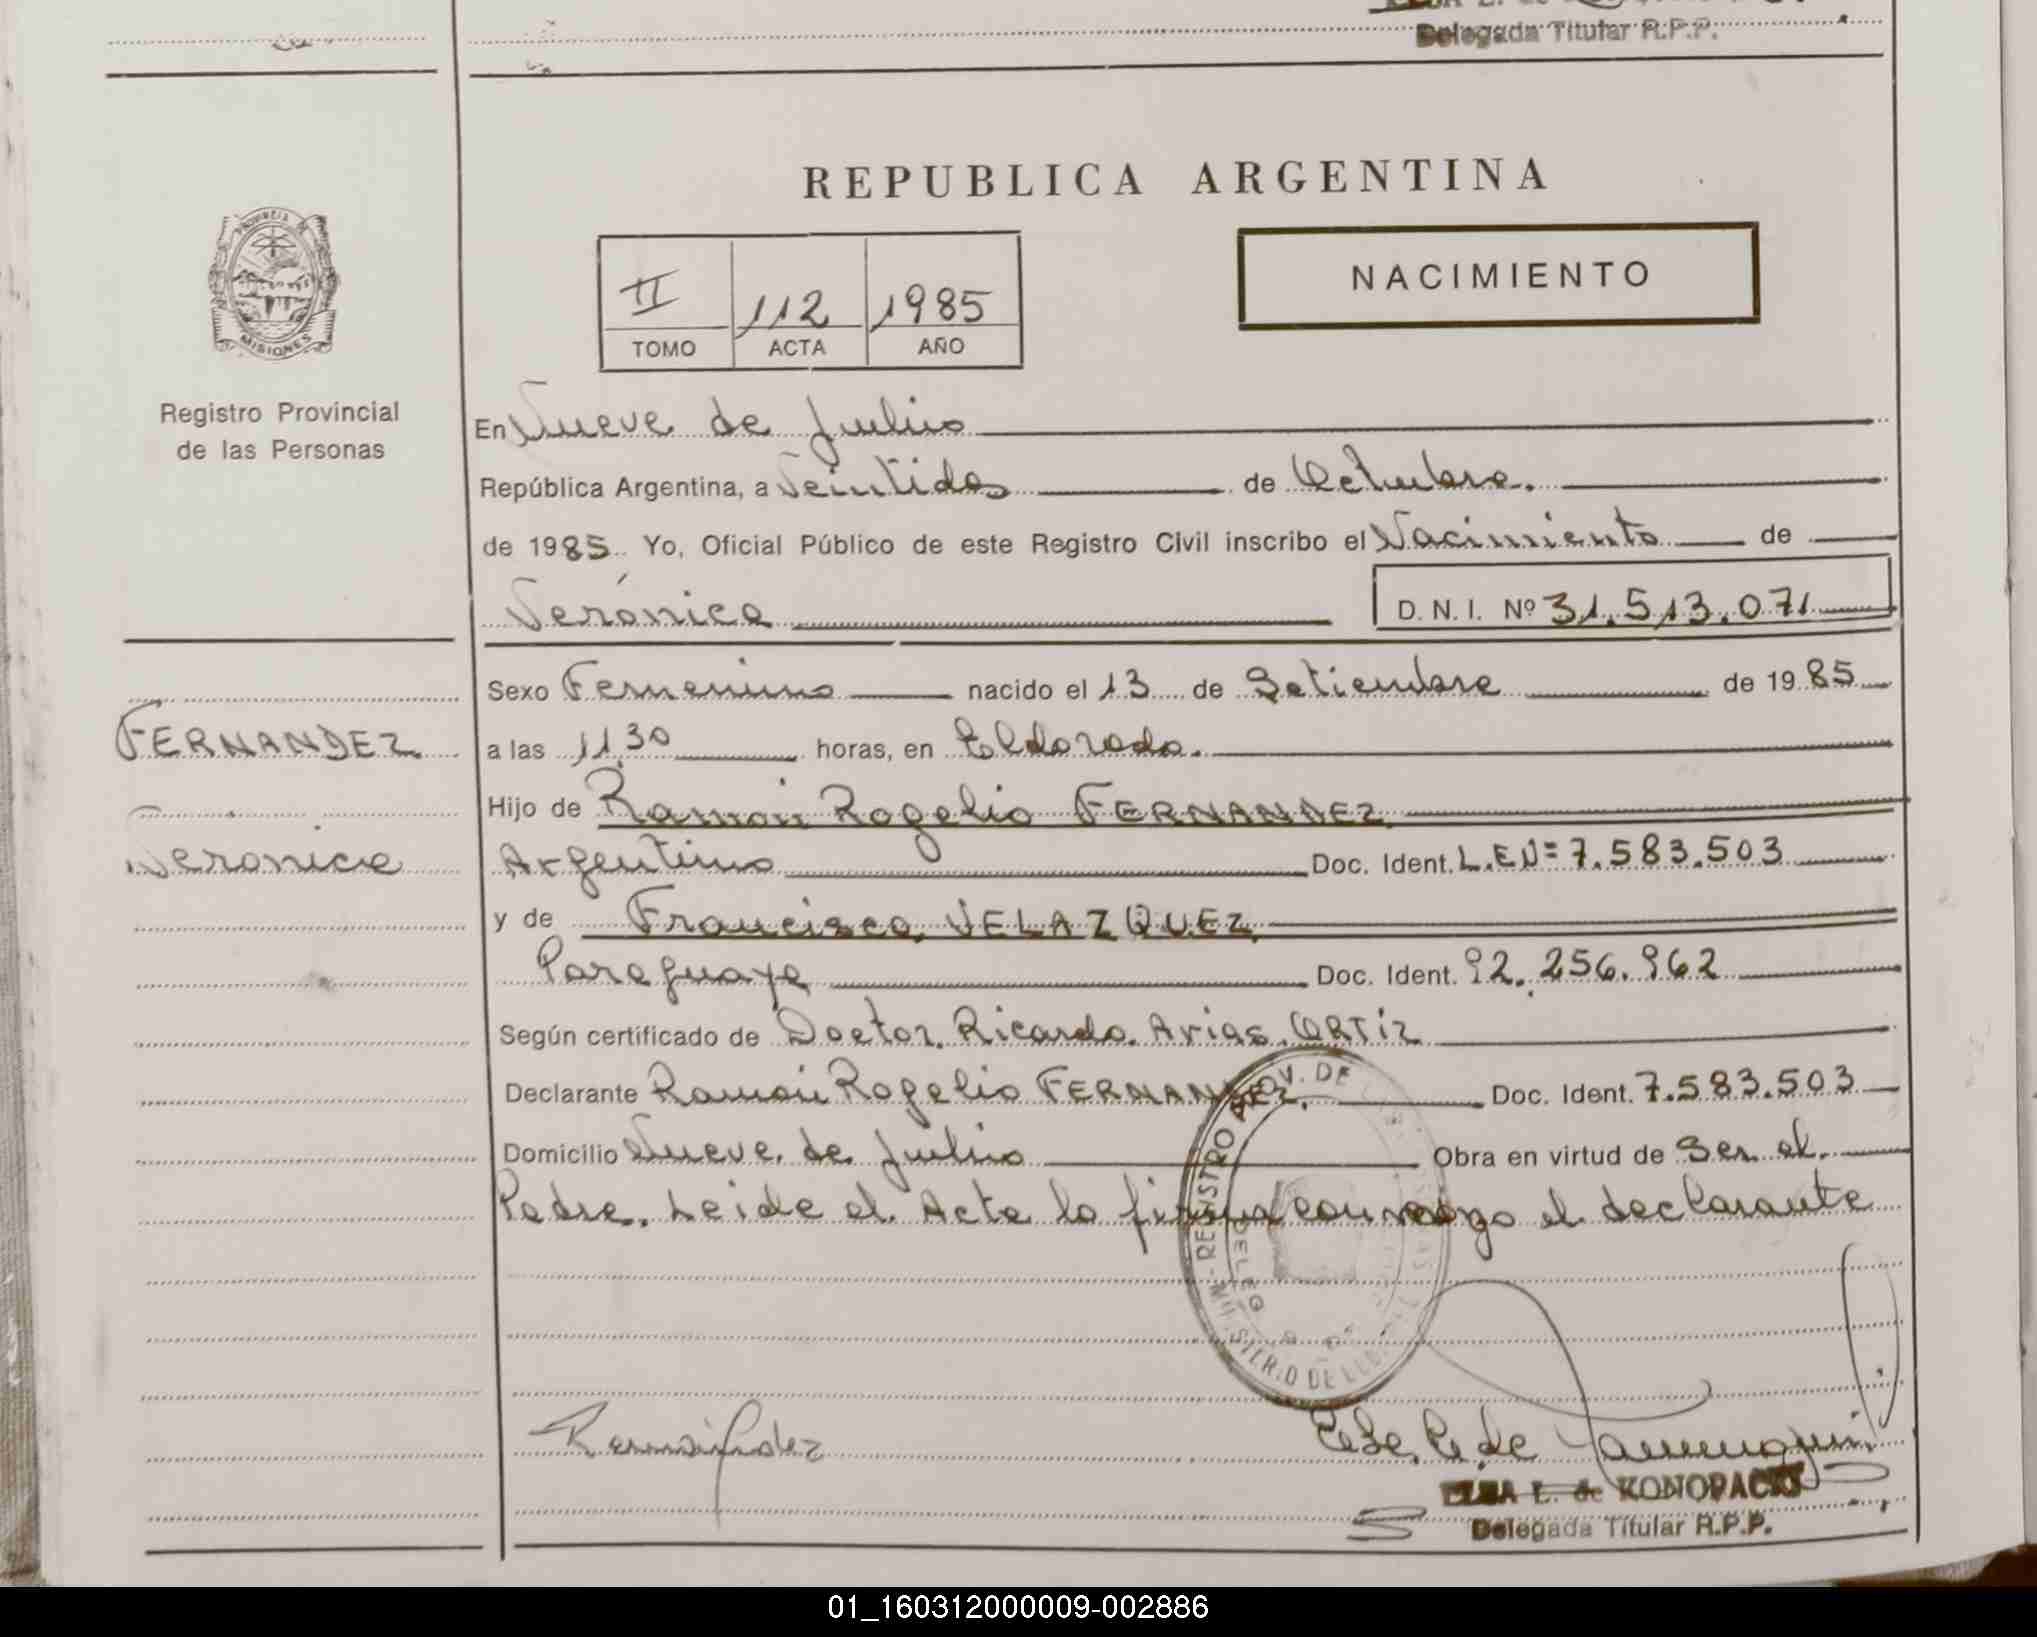 Delegada Titular R.P.P.
REPUBLICA ARGENTINA
PROVINCIA DE
MISIONES
Registro Provincial
de las Personas
II 112 1985
TOMO ACTA AÑO
NACIMIENTO
En Nueve de Julio
República Argentina, a Veintidos de Octubre.
de 1985 Yo, Oficial Público de este Registro Civil inscribo el Nacimiento de
Verónica D. N. I. Nº 31.513.071
Sexo Femenino nacido el 13 de Setiembre de 1985
FERNANDEZ
a las 11,30 horas, en Eldorado.
Hijo de Ramón Rogelio FERNANDEZ
Verónica
Argentino Doc. Ident. L.EN= 7.583.503
y de Francisca VELAZQUEZ
Paraguaya Doc. Ident. 92.256.962
Según certificado de Doctor Ricardo Arias ORTIZ
Declarante Ramón Rogelio FERNANDEZ. Doc. Ident. 7.583.503
Domicilio Nueve de Julio Obra en virtud de Ser el
Padre. Leida el Acta la firma conmigo el declarante
REGISTRO PROV. DE
ELSA L. de KONOPACKI
Delegada Titular R.P.P.
01_160312000009-002886